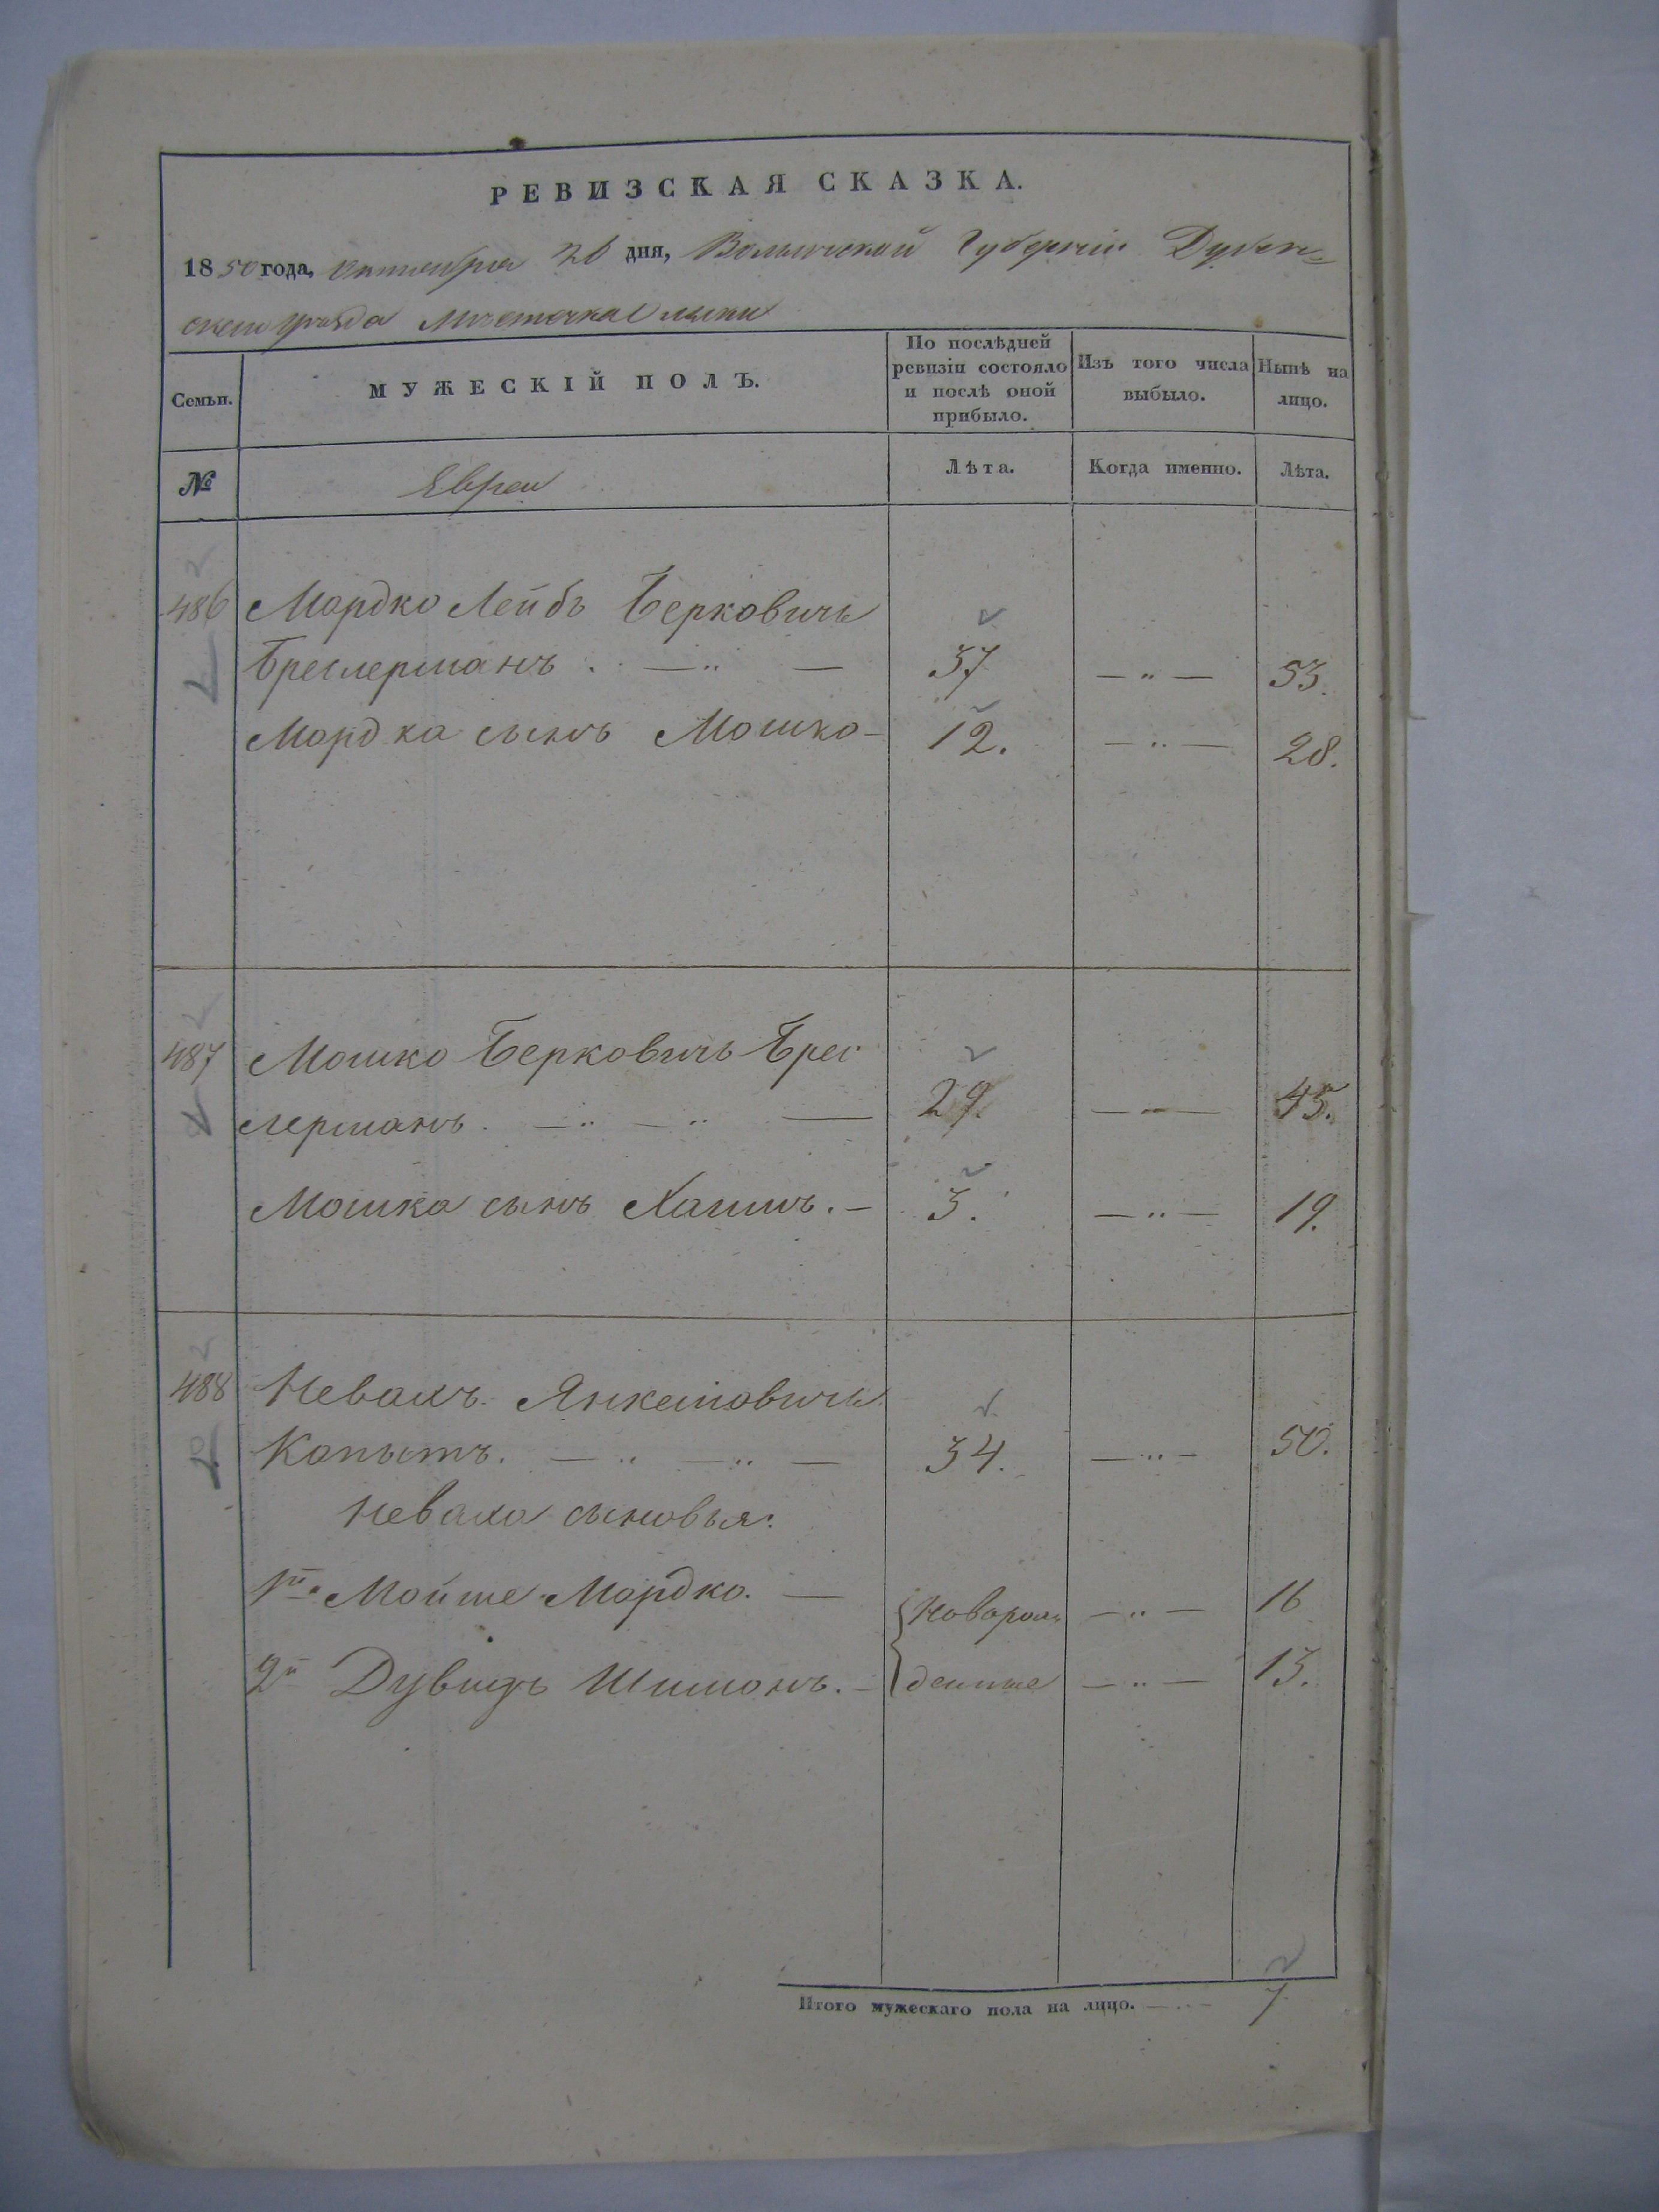 РЕВИЗСКАЯ СКАЗКА.
1850 года, октября 26 дня, Волынской Губернии Дубен=
скаго уѣзда Местечка Олыки
Семьи.
МУЖЕСКІЙ ПОЛЪ.
По послѣдней ревизіи состояло и послѣ оной прибыло.
Изъ того числа выбыло.
Нынѣ на лицо.
№
Евреи
Лѣта.
Когда именно.
Лѣта.
486 Мордко Лейбъ Берковичъ
Бреслерманъ. — „ — 37 — „ — 53.
Мордка сынъ Мошко — 12. — „ — 28.
487 Мошко Берковичъ Брес
лерманъ. — „ — „ — 29. — „ — 45.
Мошка сынъ Хаимъ. — 3. — „ — 19.
488 Невахъ Янкелювичъ
Копытъ. — „ — „ — 34. — „ — 50.
Неваха сыновья:
1й. Мойше Мордко. — Новорож= — „ — 16
2й Дувидъ Шимонъ. — денные — „ — 13.
Итого мужескаго пола на лицо. — „ — 7